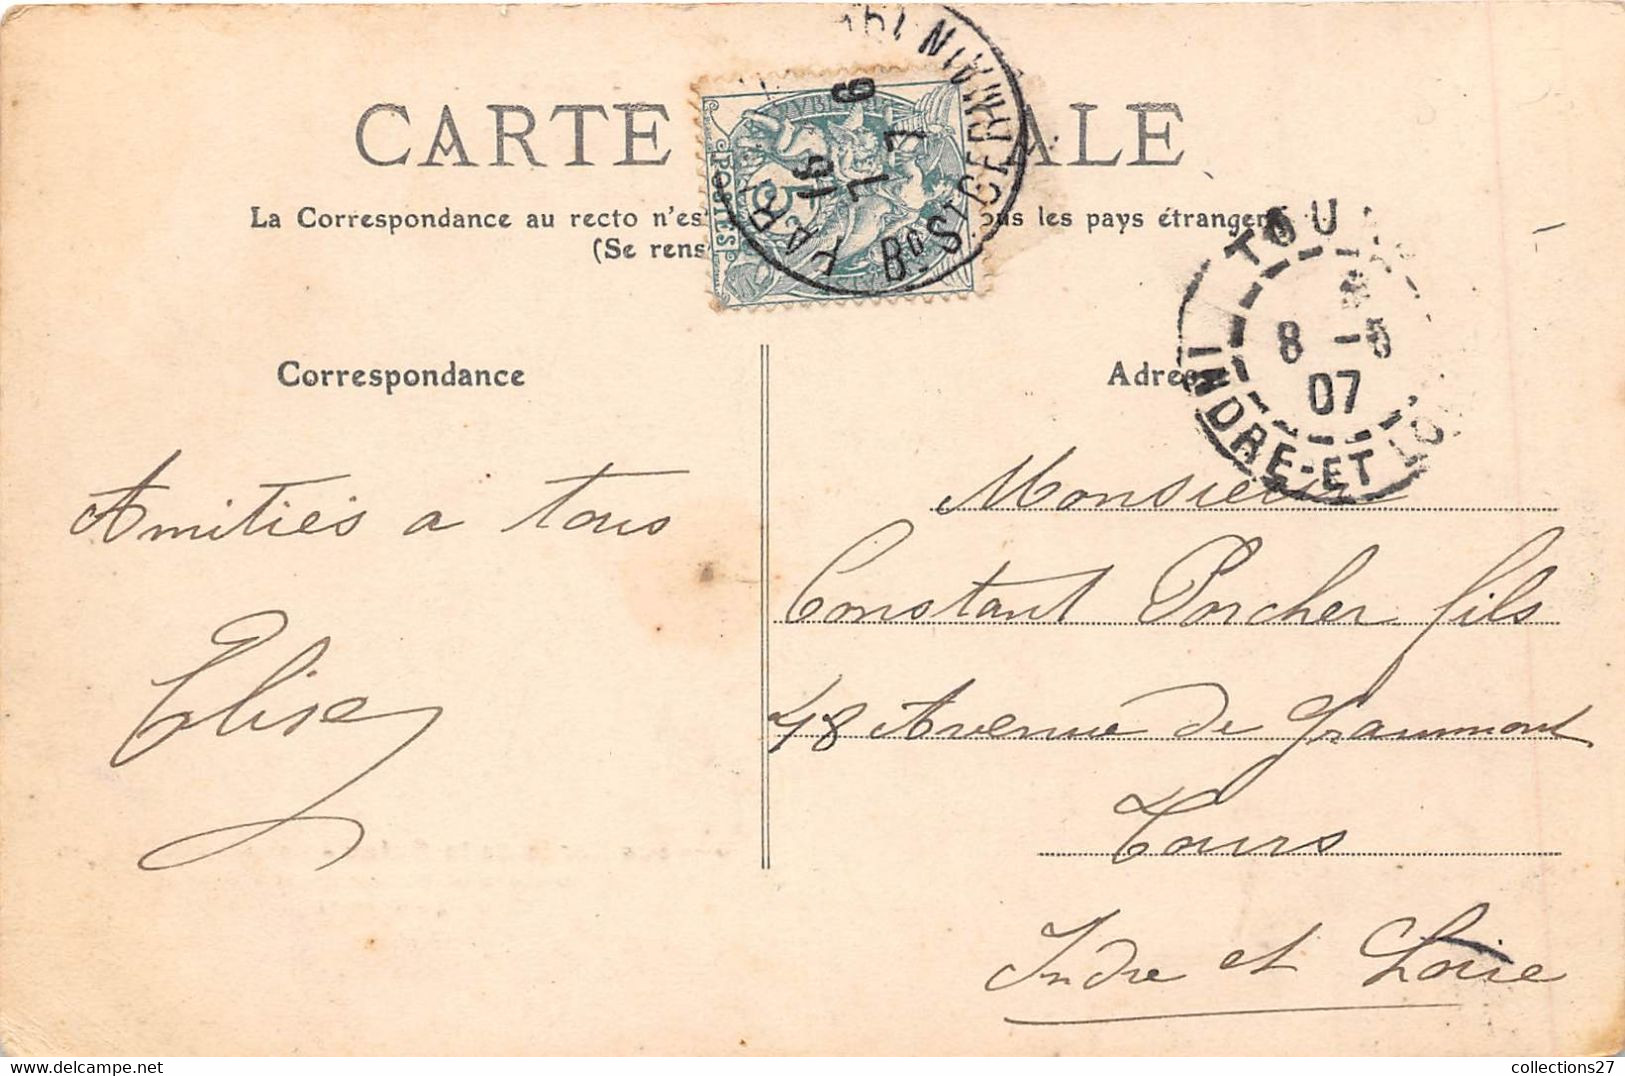 CARTE ALE
La Correspondance au recto n'es ous les pays étrangers
(Se rens
POSTES
5
PARI
16
7 7
6
Bd ST GERMAIN
TOU
8 -6
07
INDRE-ET LO
Correspondance
Adres
Amitiés a tous
Elise
Monsieur
Constant Porcher fils
48 Avenue de Grammont
Tours
Indre et Loire
collections27